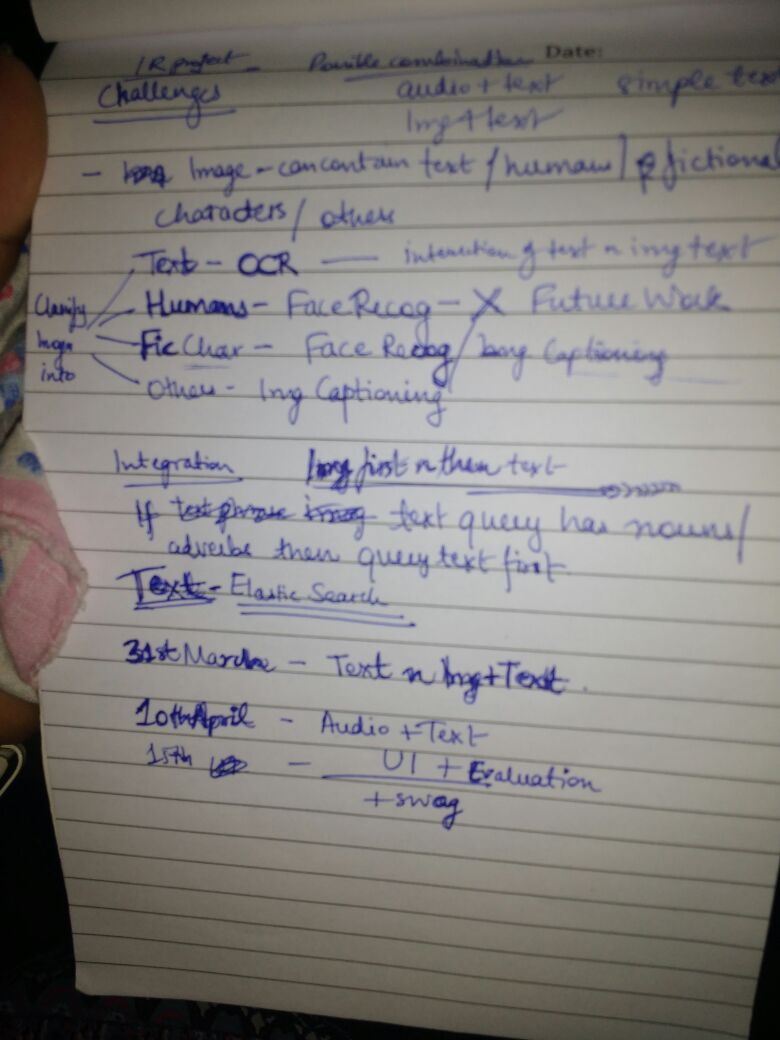 IR project - Possible combination Date:
Challenges audio + text simple text
Img + text
- Image - can contain text / humans / fictional
characters / others
Text - OCR — intersection of text n img text
Classify Humans - Face Recog - X Future Work
Imgs Fic Char - Face Recog Img Captioning
into others - Img Captioning
Integration Img first n then text
If text phrase text query has nouns /
adverbs then query text first.
Text - Elastic Search
31st March - Text n Img + Text.
10th April - Audio + Text
15th - UI + Evaluation
+ swag